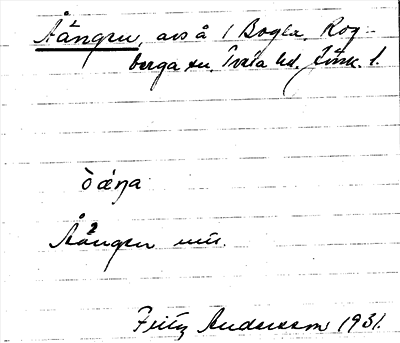 Åängen, avs å 1 Bogla, Rog-
berga sn. Tveta hd. Jönk. l.
òǽŋa
Åängen
Fritz Andersson 1931.